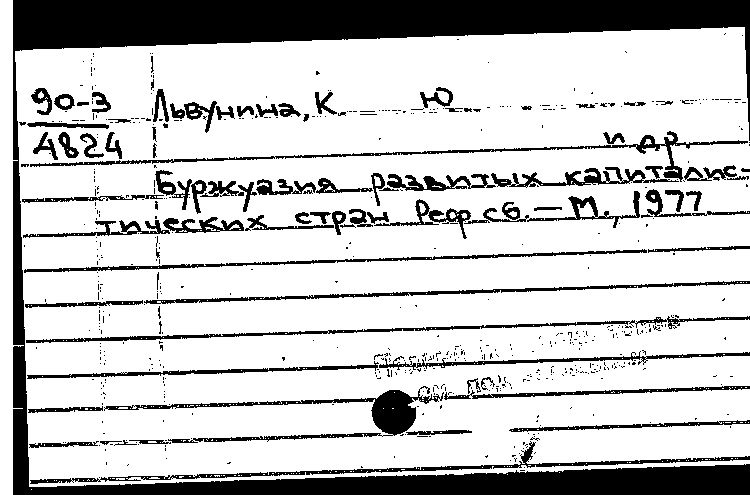 90-3
4824
Львунина, К. Ю
и др.
Буржуазия развитых капиталис-
тических стран Реф сб. — М., 1977